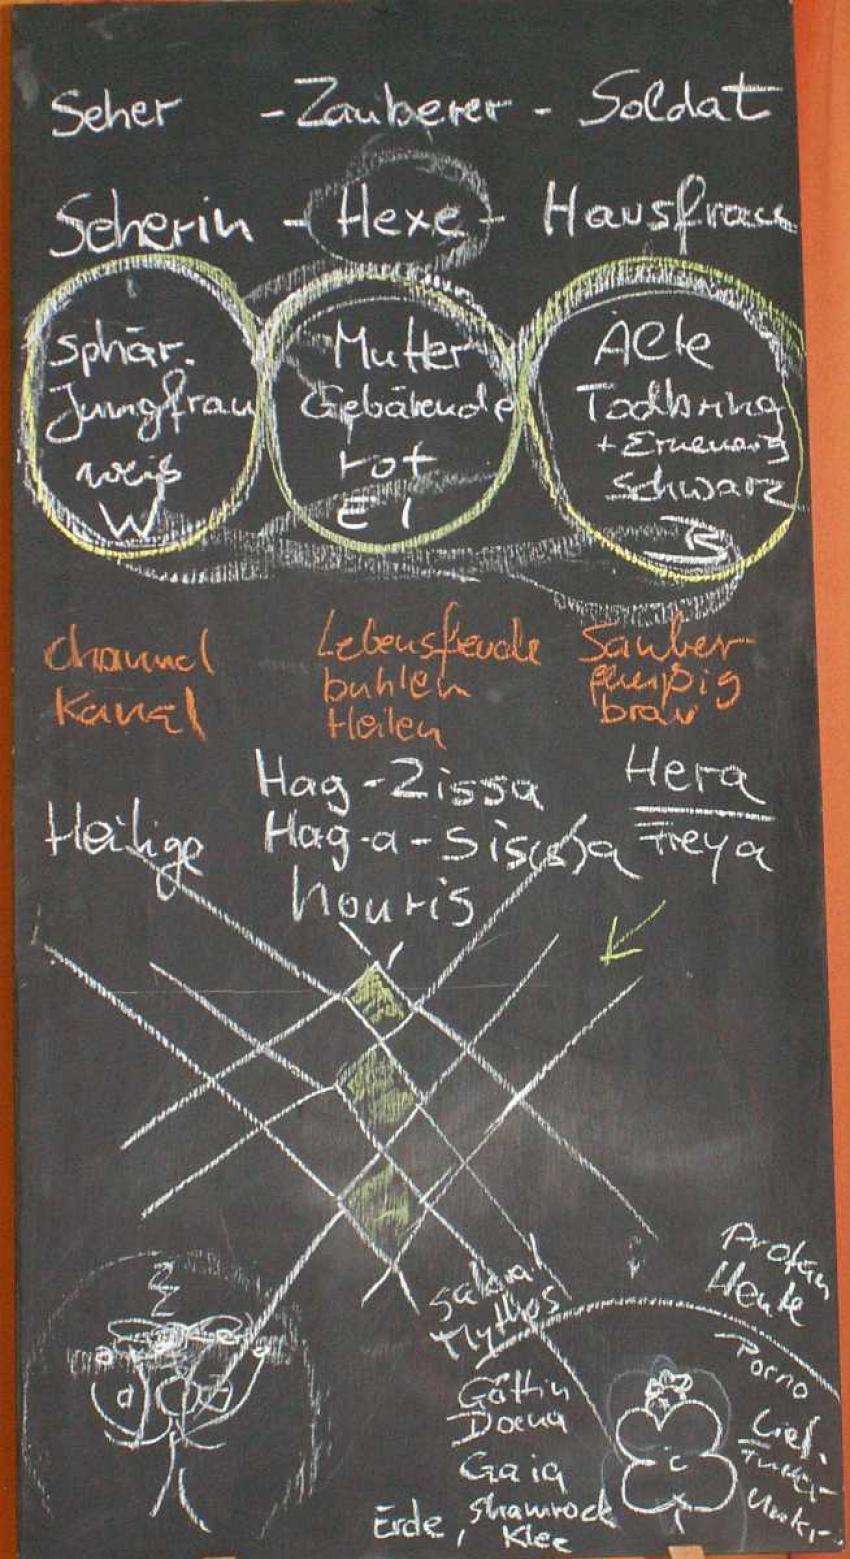 Seher - Zauberer - Soldat
Seherin - Hexe - Hausfrau
sphär.
Jungfrau
weiß
W
Mutter
Gebärende
rot
E 1
Alte
Todbring
+ Erneuerig
Schwarz
channel
Kanal
Lebensfreude
buhlen
Heilen
Sauber
brav
Hag-Zissa
Hag-a-Sis(s)a
houris
Hera
Freya
Heilige
sakral
Mythos
Göttin
Gaia
Erde, shamrock
Klee
Profan
Heute
Porno